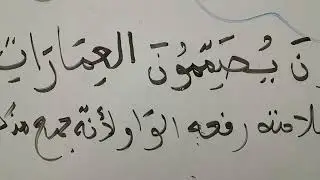 نَ يُصَمِّمُونَ العِمَارَاتِ
علامته رفعه الواو لأنه جمع مذكر